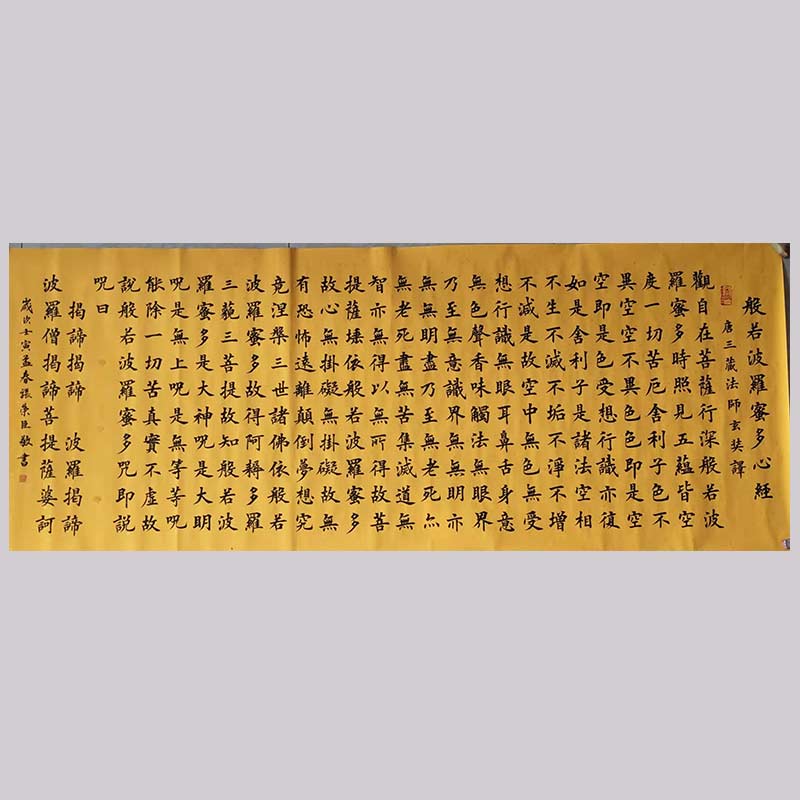 般若波羅蜜多心經
唐三藏法師玄奘譯
觀自在菩薩行深般若波
羅蜜多時照見五蘊皆空
度一切苦厄舍利子色不
異空空不異色色即是空
空即是色受想行識亦復
如是舍利子是諸法空相
不生不滅不垢不淨不增
不減是故空中無色無受
想行識無眼耳鼻舌身意
無色聲香味觸法無眼界
乃至無意識界無無明亦
無無明盡乃至無老死亦
無老死盡無苦集滅道無
智亦無得以無所得故菩
提薩埵依般若波羅蜜多
故心無掛礙無掛礙故無
有恐怖遠離顛倒夢想究
竟涅槃三世諸佛依般若
波羅蜜多故得阿耨多羅
三藐三菩提故知般若波
羅蜜多是大神呪是大明
呪是無上呪是無等等呪
能除一切苦真實不虛故
說般若波羅蜜多呪即説
呪曰
揭諦揭諦 波羅揭諦
波羅僧揭諦菩提薩婆訶
歲次壬寅孟春張榮臣敬書